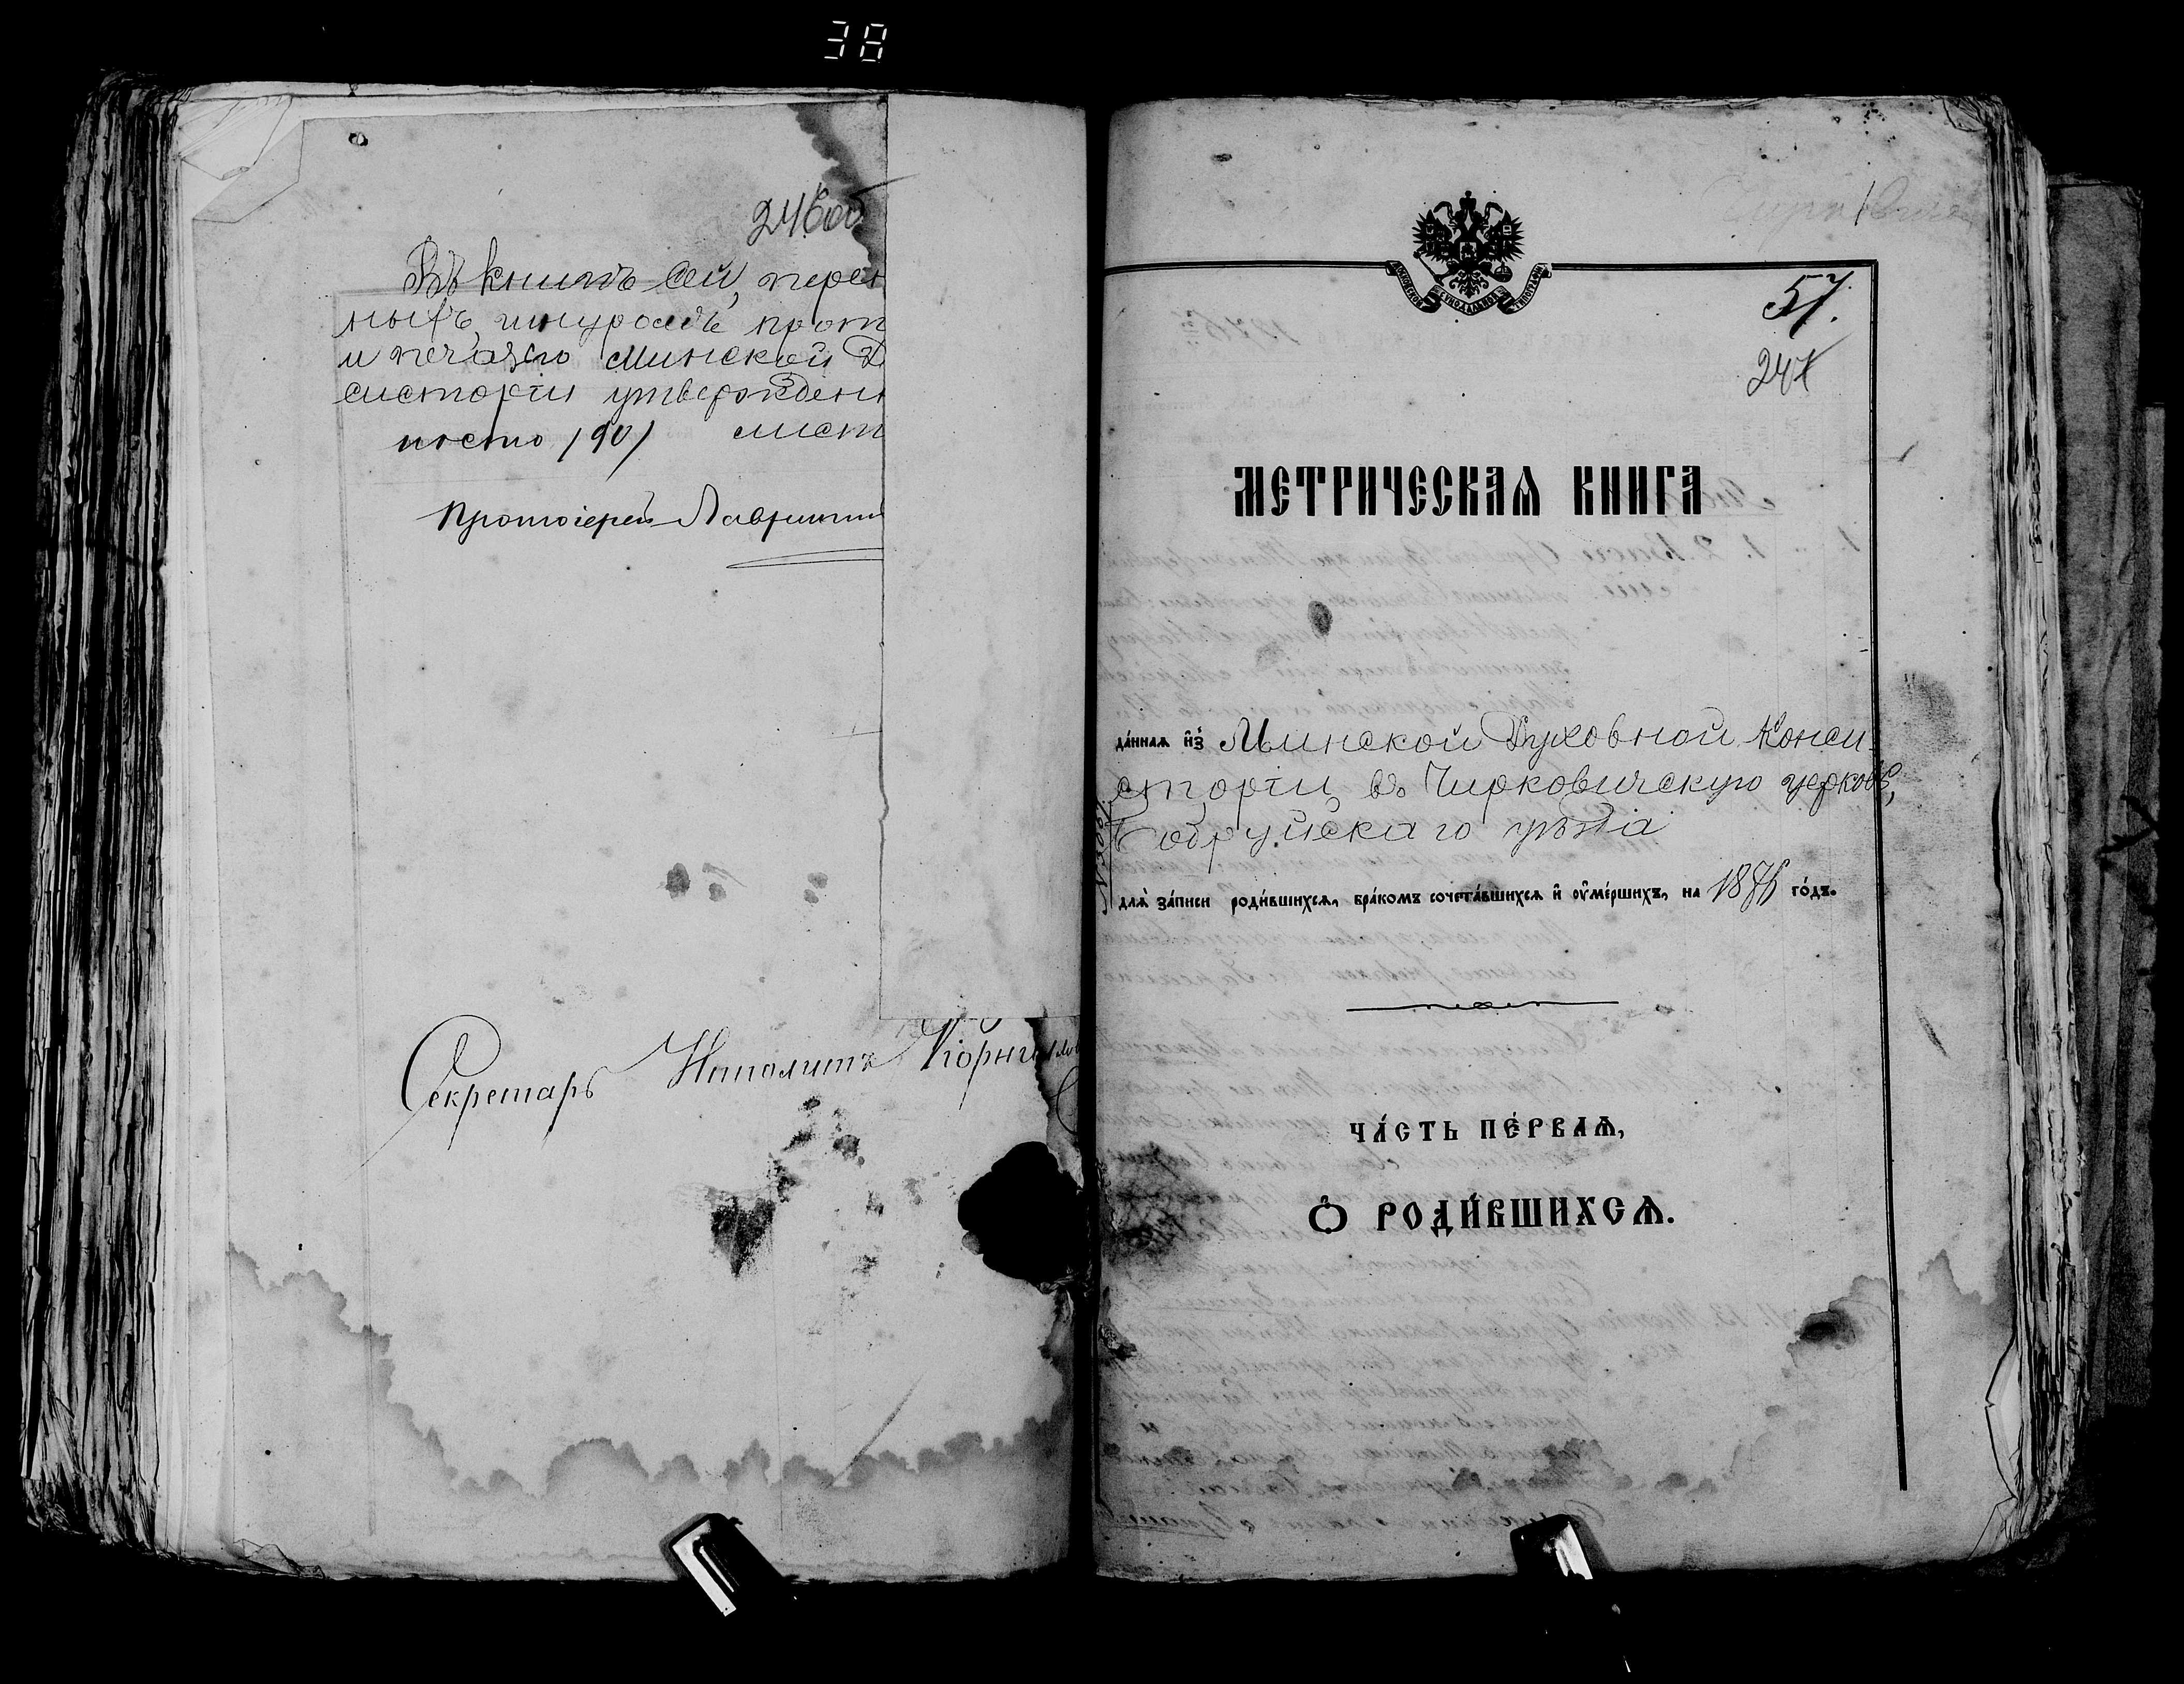 38
246об
Въ книгѣ сей, перен
ныхъ, шнуромъ прот
и печатью Минской Д
систоріи утвержден
ностью 190/ лист
Протоіерей
Секретарь Ипполитъ
МОСКОВСКОЙ СѴНОДАЛЬНОЙ ТИПОГРАФІИ
57.
247
МЕТРИЧЕСКАѦ КНИГА
да́ннаѧ и҆з̾ Минской Духовной Конси-
сторіи въ Чирковичскую церковь,
Бобруйскаго уѣзда
длѧ̀ за́писи роди́вшихсѧ, бра́комъ сочета́вшихсѧ и҆ ѹ҆ме́ршихъ, на 1876 го́дъ.
ЧА́СТЬ ПЕ́РВАѦ,
Ѽ РОДИ́ВШИХСѦ.